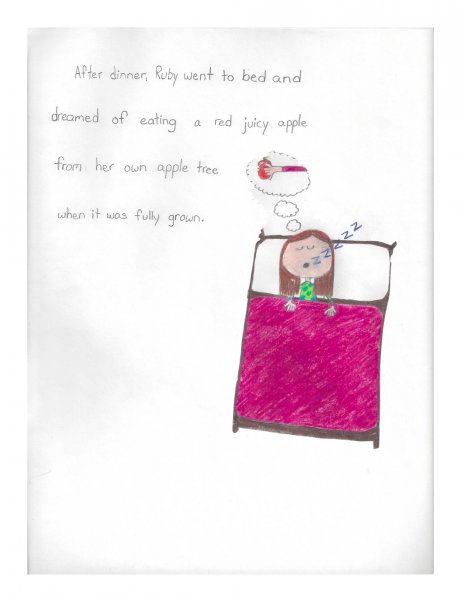 After dinner, Ruby went to bed and
dreamed of eating a red juicy apple
from her own apple tree
when it was fully grown.
zzzzz